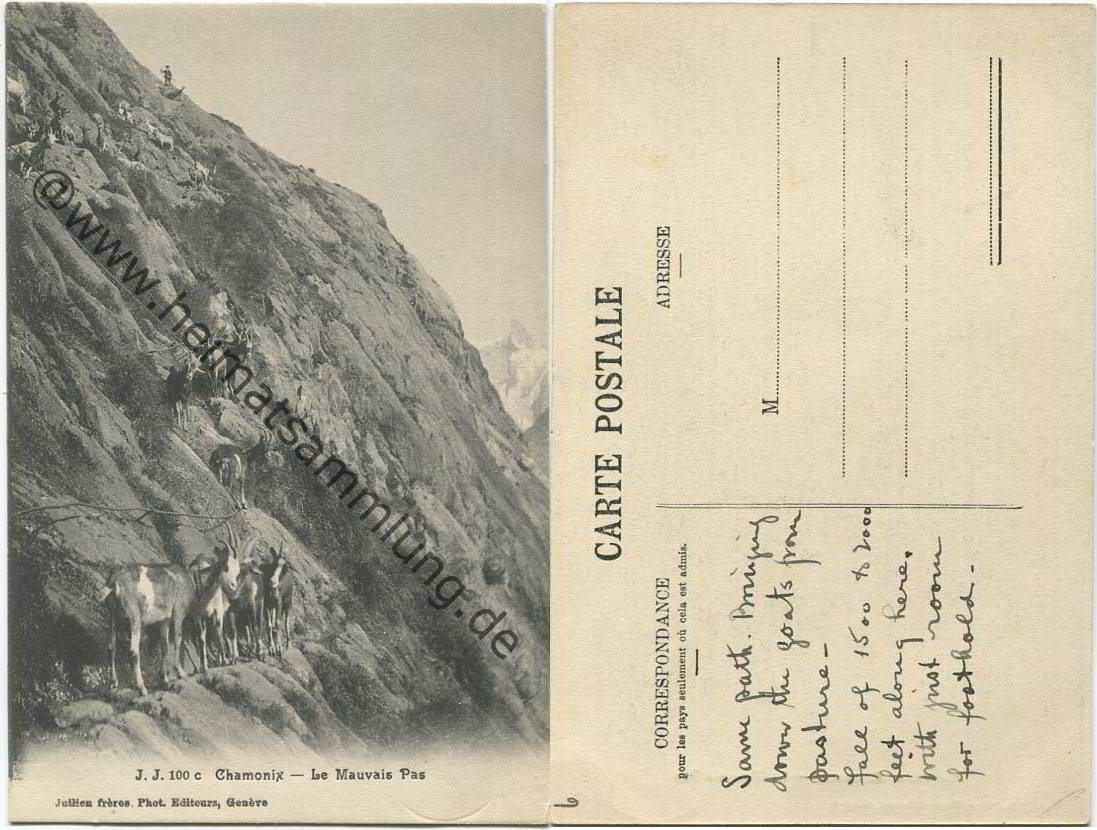 @www.heimatsammlung.de
J. J. 100 c Chamonix — Le Mauvais Pas
Jullien frères, Phot. Editeurs, Genève
CARTE POSTALE
CORRESPONDANCE
pour les pays seulement où cela est admis.
ADRESSE
M
Same path. Bringing
down the goats from
pasture –
fall of 1500 to 2000
feet along here,
with just room
for foothold –
6